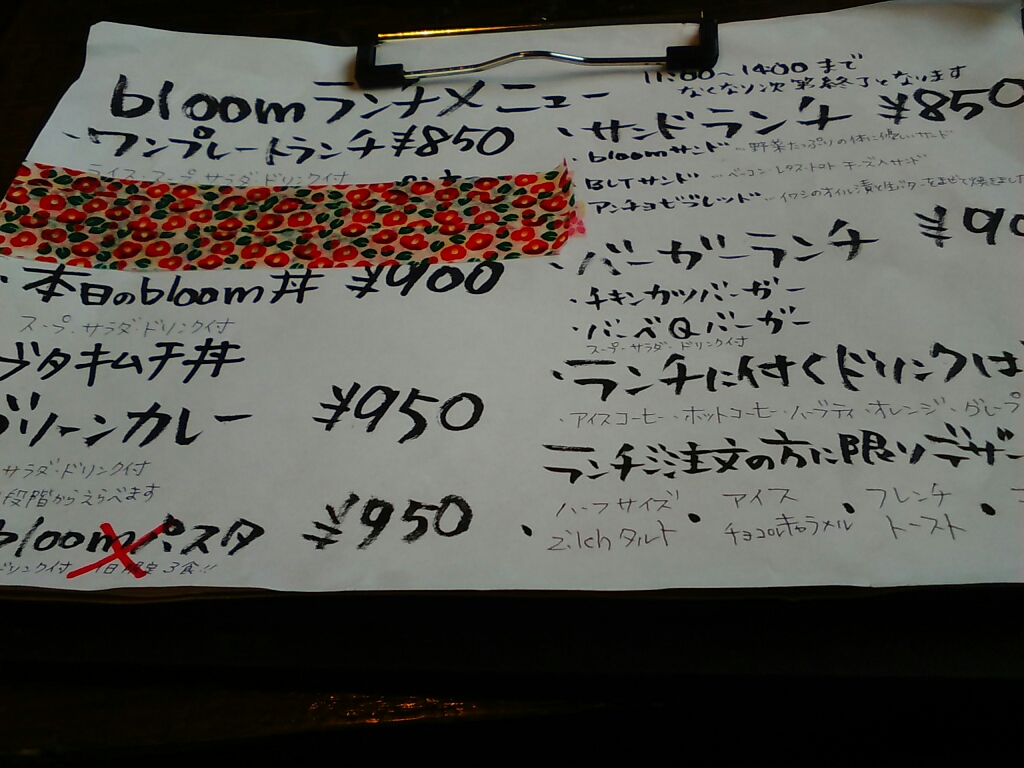 bloomランチメニュー
・ワンプレートランチ ¥850
ライス・スープ・サラダ・ドリンク付
・本日のbloom丼 ¥900
スープ・サラダ・ドリンク付
ブタキムチ丼
グリーンカレー ¥950
サラダ・ドリンク付
段階からえらべます
bloomパスタ ¥950
ドリンク付 1日限定3食!!
11:00〜14:00まで
なくなり次第終了となります
・サンドランチ ¥850
bloomサンド… 野菜たっぷりの体に優しいサンド
BLTサンド …ベーコン・レタス・トマト チーズ入サンド
アンチョビブレッド…イワシのオイル漬と生バターをまぜて焼きました
・バーガーランチ ¥90
・チキンカツバーガー
・バーベQバーガー
スープ・サラダ・ドリンク付
・ランチに付くドリンクは
・アイスコーヒー・ホットコーヒー・ハーブティ・オレンジ・グレープ
ランチご注文の方に限りデザー
・ハーフサイズ ・アイス ・フレンチ ・
zilchタルト チョコorキャラメル トースト